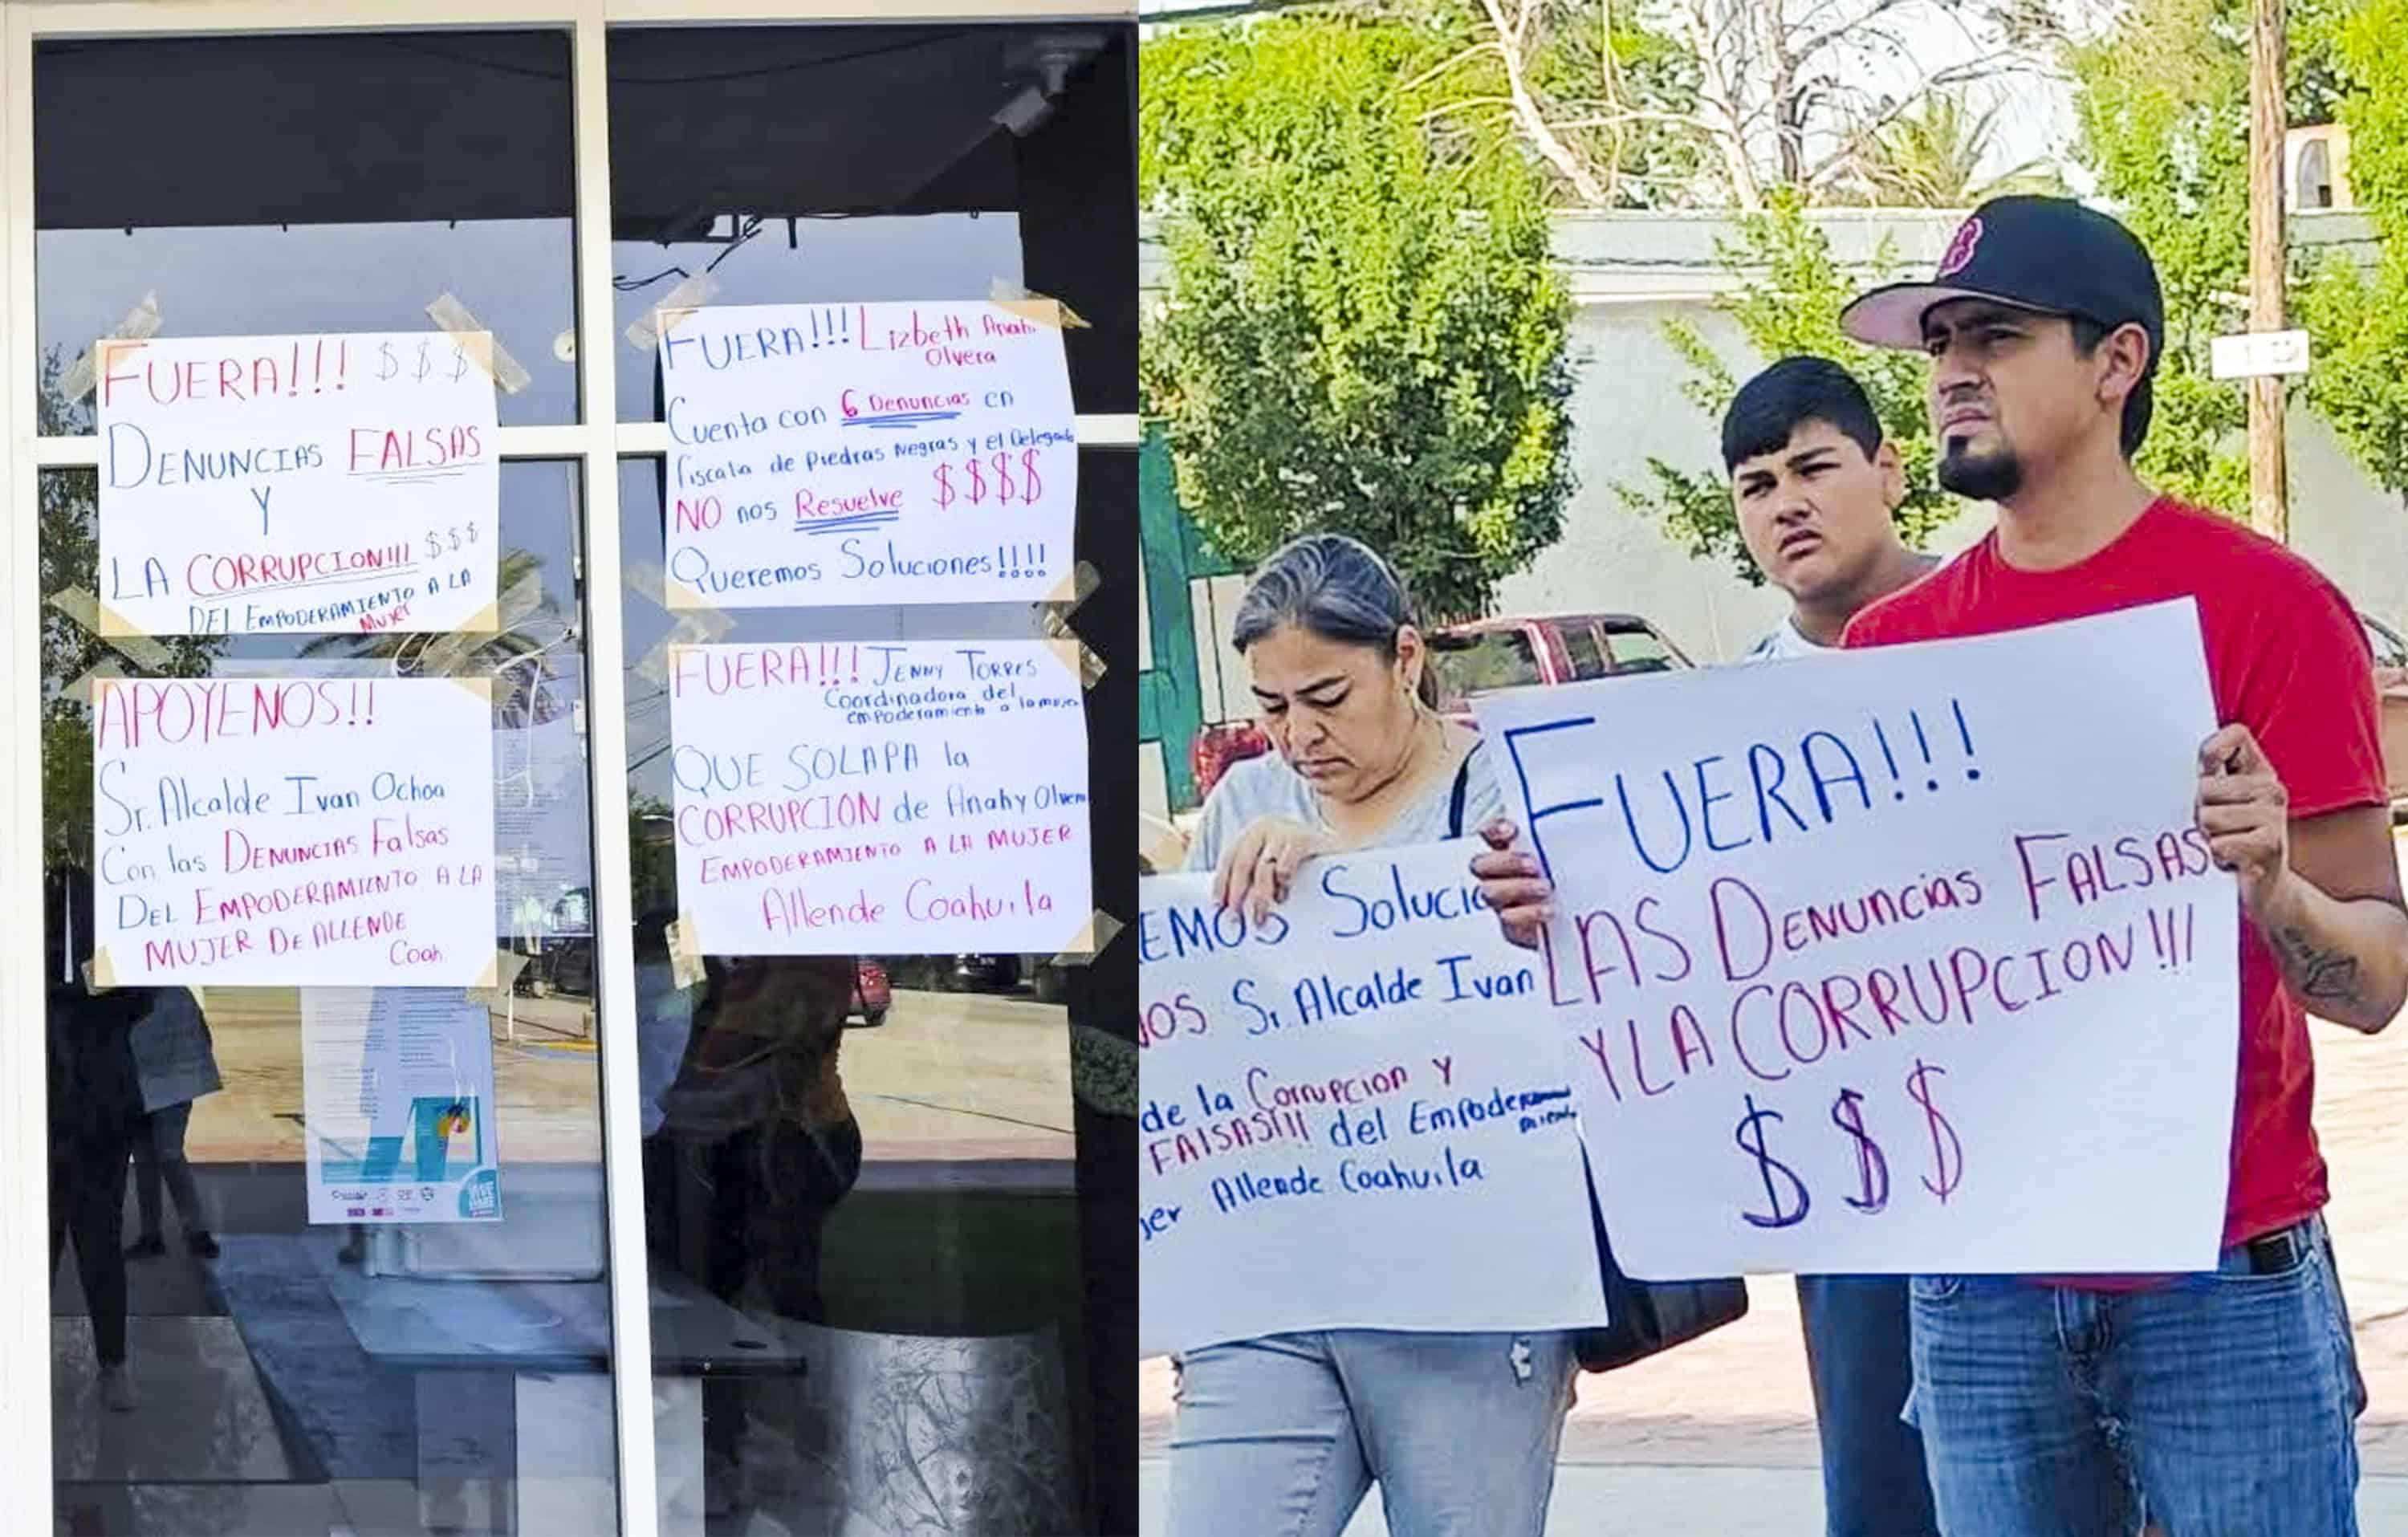 FUERA!!! $$$
DENUNCIAS FALSAS
Y
LA CORRUPCION!!! $$$
DEL EMPODERAMIENTO A LA
MUJER
APOYENOS!!
Sr. Alcalde Ivan Ochoa
Con las DENUNCIAS Falsas
DEL EMPODERAMIENTO A LA
MUJER DE ALLENDE
Coah
FUERA!!! Lizbeth Anahi
Olvera
Cuenta con 6 Denuncias en
fiscalia de Piedras Negras y el Delegado
NO nos Resuelve $$$$
Queremos Soluciones!!!!
FUERA!!! JENNY TORRES
Coordinadora del
empoderamiento a la mujer
QUE SOLAPA la
CORRUPCION de Anahy Olvera
EMPODERAMIENTO A LA MUJER
Allende Coahuila
EMOS Solucio
NOS Sr. Alcalde Ivan
de la Corrupcion y
FALSAS!!! del Empodera
jer Allende Coahuila
FUERA!!!
LAS DENUNCIAS FALSAS
Y LA CORRUPCION!!!
$$$
B